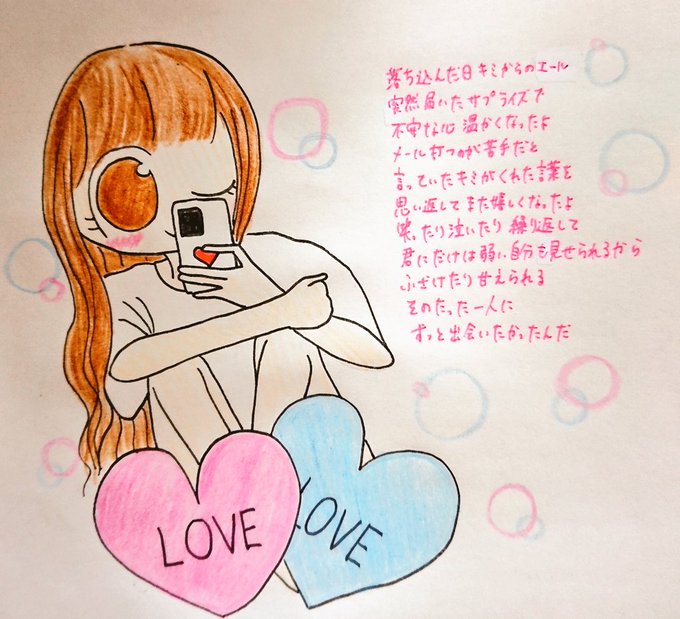 落ち込んだ日 キミからのエール
突然届いたサプライズで
不安な心 温かくなったよ
メール打つのが苦手だと
言っていたキミがくれた言葉を
思い返してまた嬉しくなったよ
笑ったり泣いたり 繰り返して
君にだけは弱い自分も見せられるから
ふざけたり甘えられる
そのたった一人に
ずっと出会いたかったんだ
LOVE
LOVE